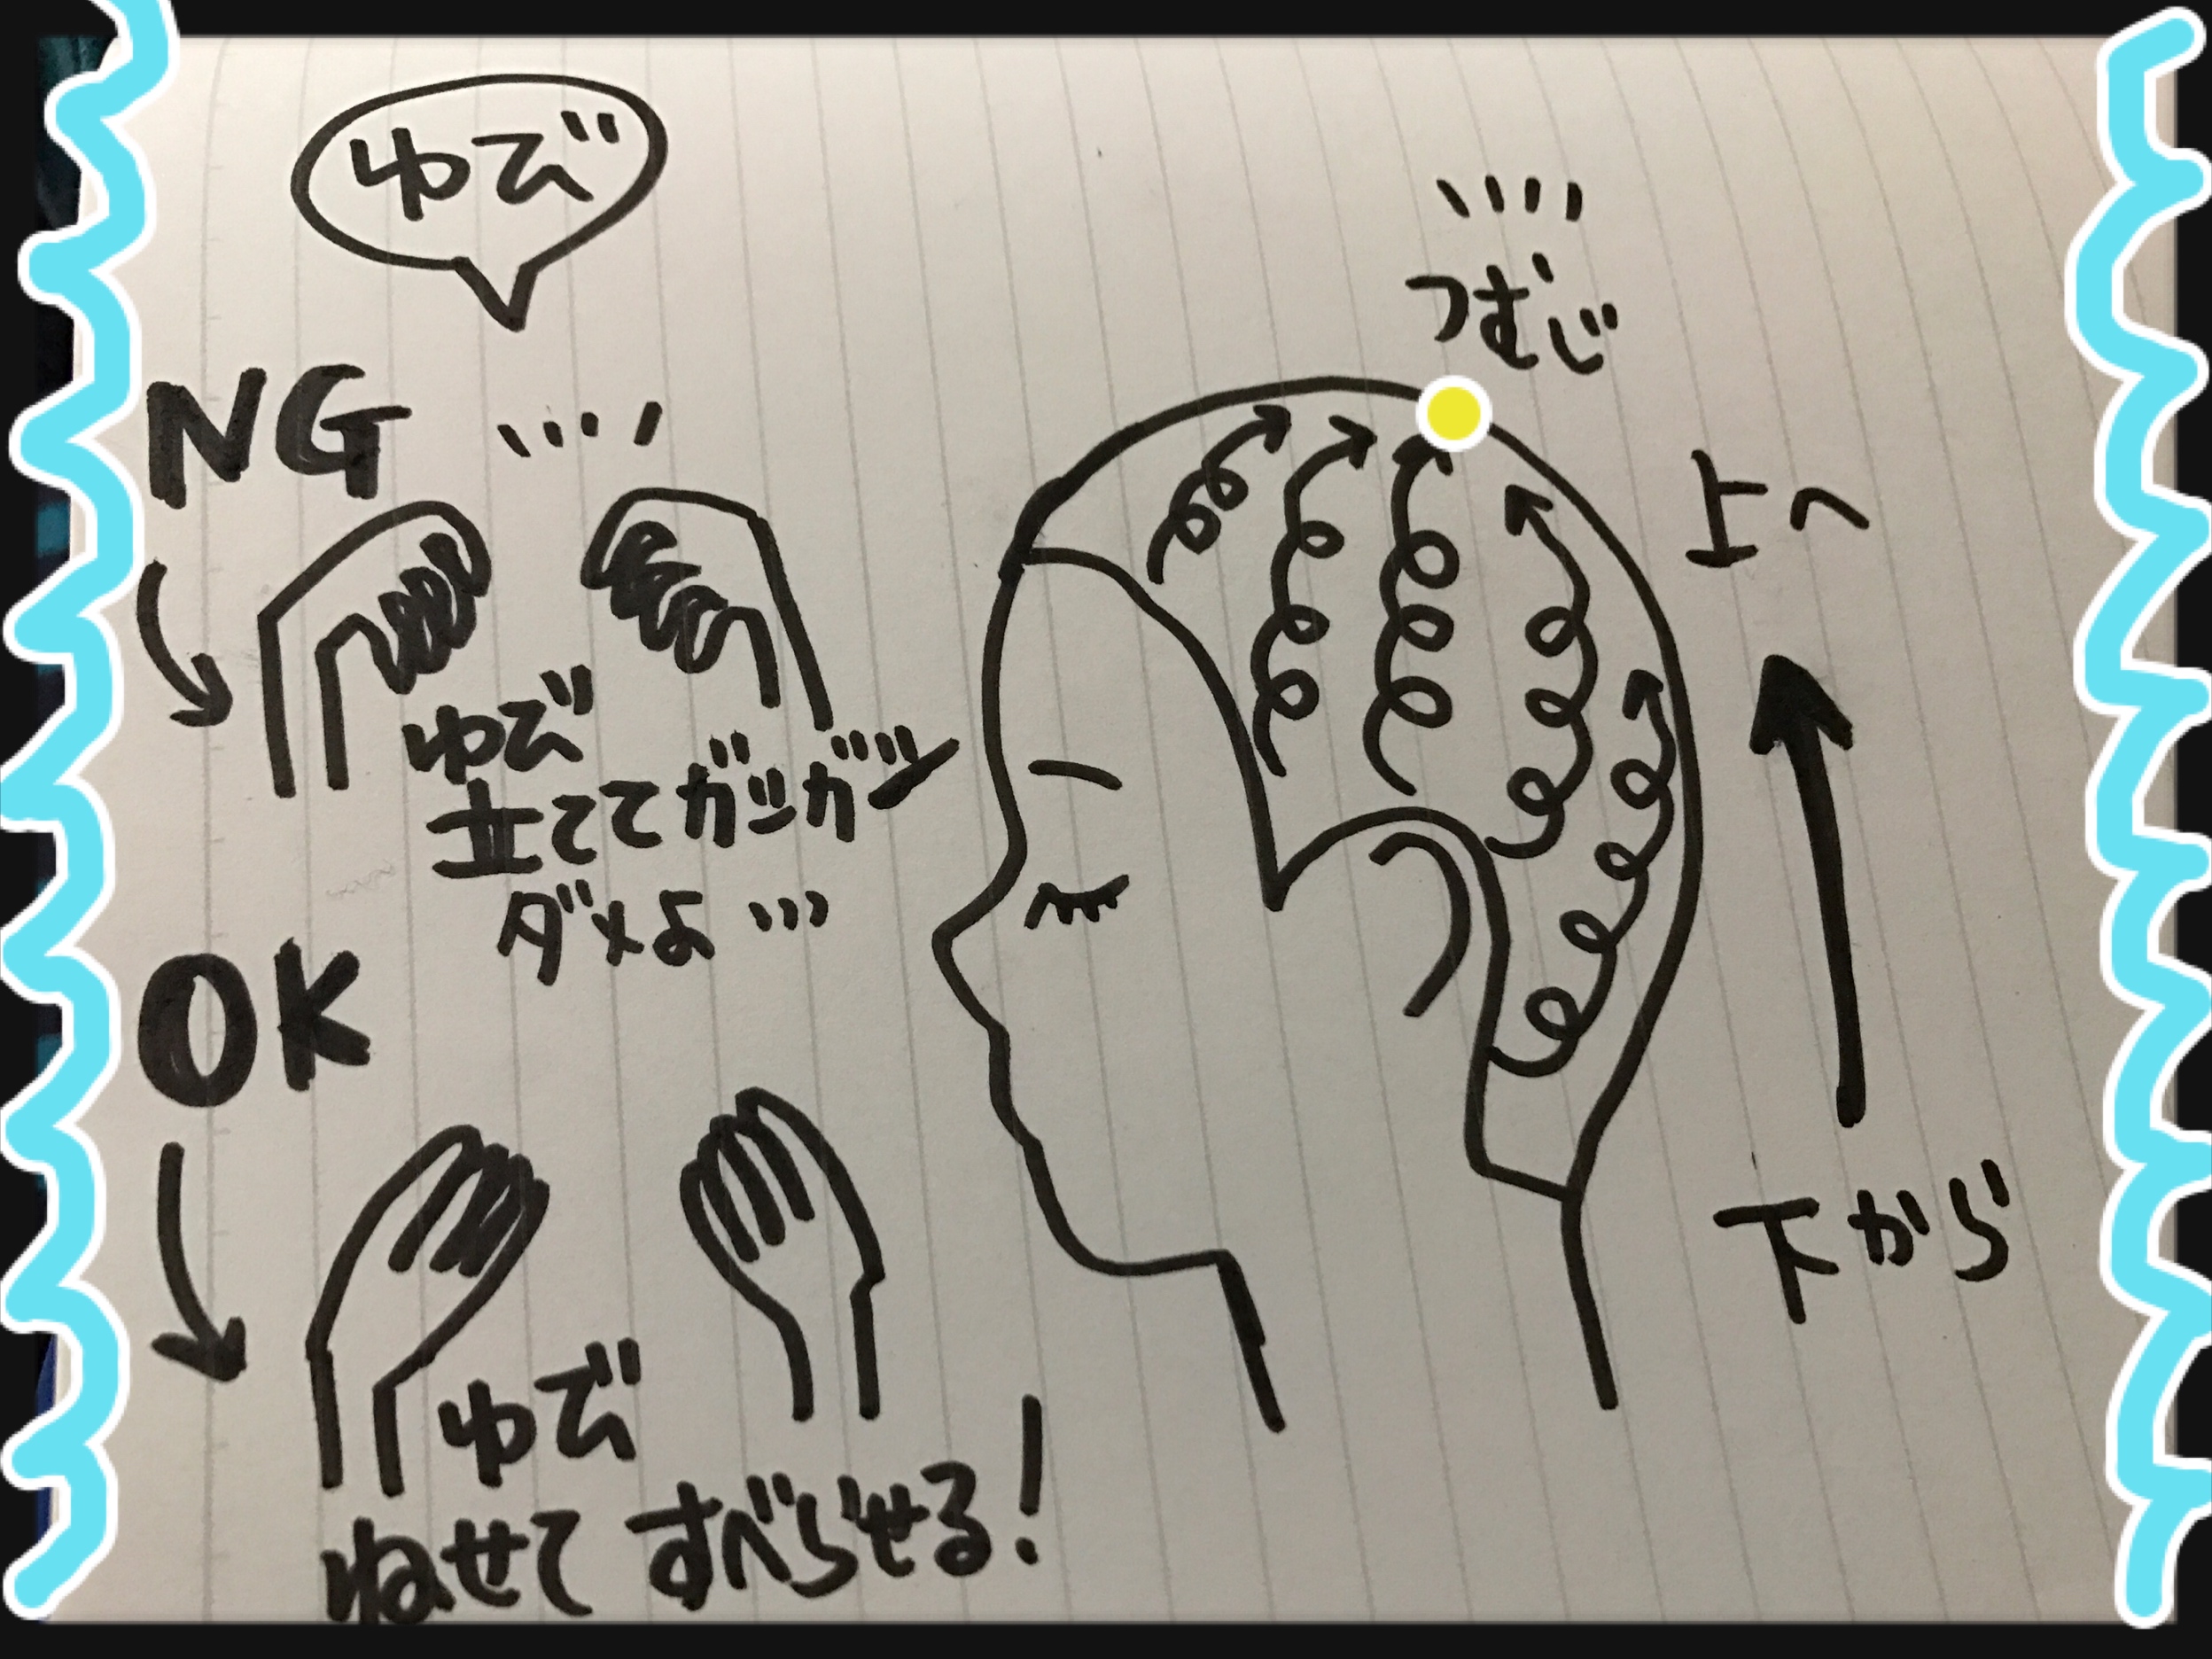 ゆび
NG
ゆび
立ててガシガシ
ダメよ…
OK
ゆび
ねせてすべらせる!
つむじ
上へ
下から